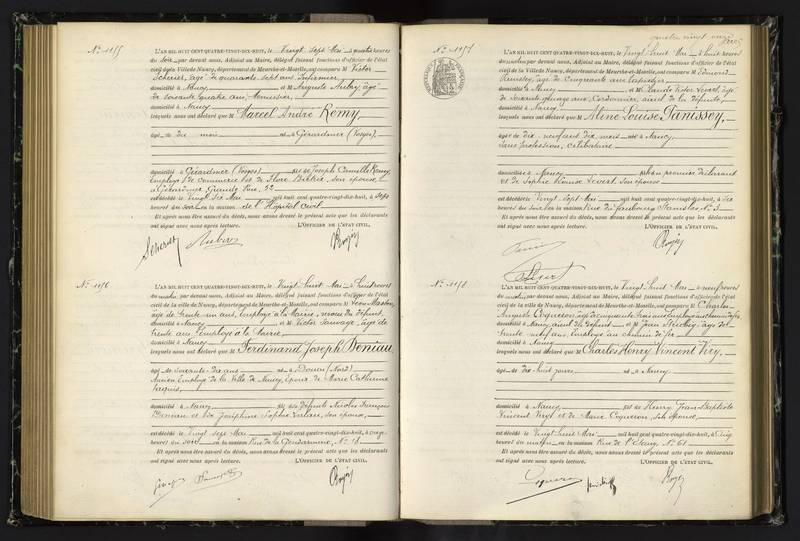 N° 1155
L'AN MIL HUIT CENT QUATRE-VINGT-DIX-HUIT, le Vingt sept Mai à quatre heures
du soir, par devant nous, Adjoint au Maire, délégué faisant fonctions d'officier de l'état
civil de la Ville de Nancy, département de Meurthe-et-Moselle, ont comparu M Victor
Scherier, âgé de quarante sept ans, Infirmier
domicilié à Nancy et M Auguste Aubry, âgé
de soixante quatre ans, Menuisier,
domicilié à Nancy
lesquels nous ont déclaré que M Marcel André Remy,
âgé de dix mois né à Gérardmer (Vosges),
domicilié à Gérardmer (Vosges) fils de Joseph Camille Remy
Employé de Commerce et de Flore son épouse,
à Gérardmer, Grande Rue, 52
est décédé le Vingt six Mai mil huit cent quatre-vingt-dix-huit, à sept
heures du soir en la maison de l'Hôpital civil
Et après nous être assuré du décès, nous avons dressé le présent acte que les déclarants
ont signé avec nous après lecture. L'OFFICIER DE L'ÉTAT CIVIL,
N° 1156
L'AN MIL HUIT CENT QUATRE-VINGT-DIX-HUIT, le Vingt huit Mai à huit heures
du matin, par devant nous, Adjoint au Maire, délégué faisant fonctions d'officier de l'état
civil de la ville de Nancy, département de Meurthe-et-Moselle, ont comparu M Léon Masson,
âgé de trente un ans, Employé à la Mairie, du défunt,
domicilié à Nancy et M Victor Sauvage, âgé de
trente ans, Employé à la Mairie,
domicilié à Nancy
lesquels nous ont déclaré que M Ferdinand Joseph Deniau,
âgé de soixante-dix ans né à Douai (Nord)
Ancien Employé de la Ville de Nancy, époux de Marie Catherine
domicilié à Nancy fils des défunts Nicolas François
Deniau et de Joséphine Sophie son épouse,
est décédé le Vingt sept Mai mil huit cent quatre-vingt-dix-huit, à cinq
heures du soir en la maison Rue de la Gendarmerie, N° 18
Et après nous être assuré du décès, nous avons dressé le présent acte que les déclarants
ont signé avec nous après lecture. L'OFFICIER DE L'ÉTAT CIVIL,
quatre vingt onze
N° 1157
RÉPUBLIQUE FRANÇAISE
L'AN MIL HUIT CENT QUATRE-VINGT-DIX-HUIT, le Vingt huit Mai à huit heures
du matin, par devant nous, Adjoint au Maire, délégué faisant fonctions d'officier de l'état
civil de la Ville de Nancy, département de Meurthe-et-Moselle, ont comparu M Edmond
âgé de Cinquante ans, Tapissier,
domicilié à Nancy et M Claude Victor âgé
de soixante ans, Cordonnier, aïeul de la défunte,
domicilié à Nancy
lesquels nous ont déclaré que M Aline Louise
âgée de dix-neuf ans, dix mois née à Nancy
sans profession, célibataire
domiciliée à Nancy fille du premier déclarant
et de Sophie son épouse
est décédée le Vingt sept Mai mil huit cent quatre-vingt-dix-huit, à dix
heures du soir en la maison Rue du faubourg Stanislas N° 3
Et après nous être assuré du décès, nous avons dressé le présent acte que les déclarants
ont signé avec nous après lecture. L'OFFICIER DE L'ÉTAT CIVIL,
N° 1158
L'AN MIL HUIT CENT QUATRE-VINGT-DIX-HUIT, le Vingt huit Mai à neuf heures
du matin, par devant nous, Adjoint au Maire, délégué faisant fonctions d'officier de l'état
civil de la ville de Nancy, département de Meurthe-et-Moselle, ont comparu M Charles
Auguste Coqueron, âgé de cinquante trois ans, Employé au chemin de fer,
domicilié à Nancy, aïeul du défunt et M Jean âgé de
trente huit ans, Employé au chemin de fer
domicilié à Nancy
lesquels nous ont déclaré que M Charles Henry Vincent Viry,
âgé de dix huit jours né à Nancy
domicilié à Nancy fils de Henry Jean Baptiste
Vincent Viry et de Marie Coqueron, son épouse,
est décédé le Vingt huit Mai mil huit cent quatre-vingt-dix-huit, à Cinq
heures du matin, en la maison Rue de N° 61
Et après nous être assuré du décès, nous avons dressé le présent acte que les déclarants
ont signé avec nous après lecture. L'OFFICIER DE L'ÉTAT CIVIL,